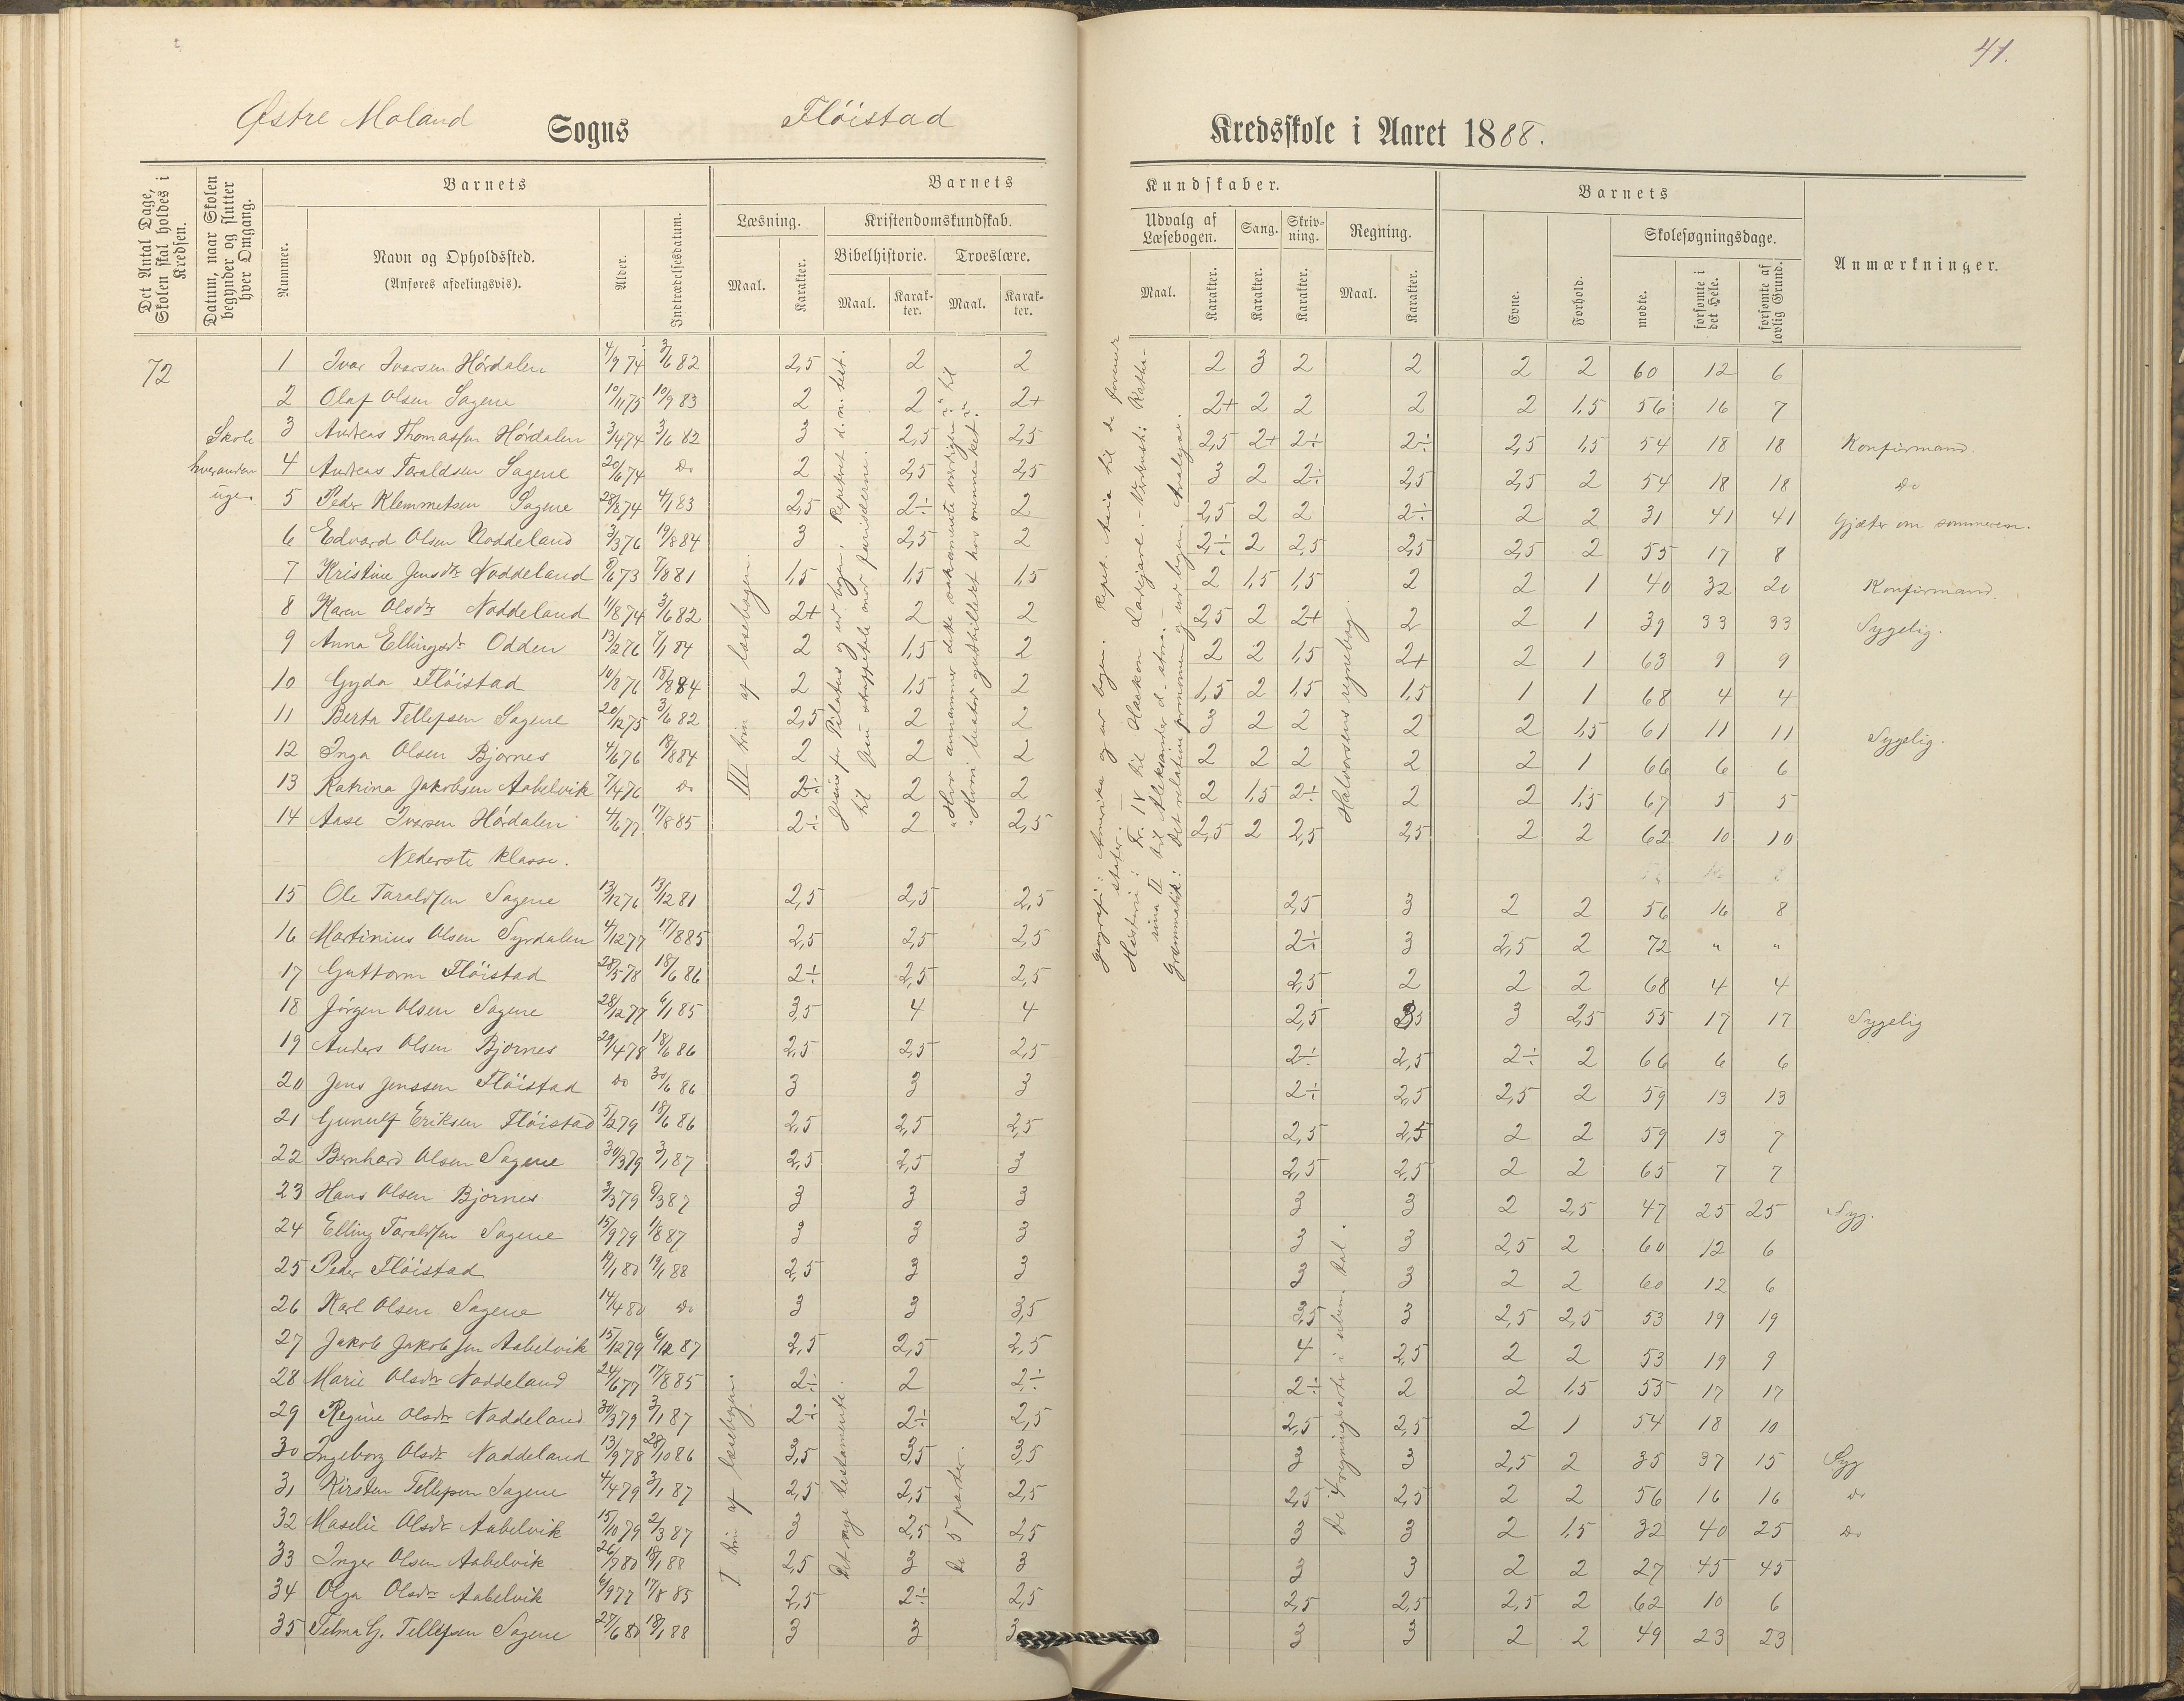 41.
Østre Moland Sogns Flöistad Kredsskole i Aaret 1888.
Det Antal Dage, Skolen skal holdes i Kredsen.
Datum, naar Skolen begynder og slutter hver Omgang.
Barnets
Nummer.
Navn og Opholdssted.
(Anføres afdelingsvis).
Alder.
Indtrædelsesdatum.
Barnets Kundskaber.
Læsning.
Maal.
Karakter.
Kristendomskundskab.
Bibelhistorie.
Maal.
Karakter.
Troeslære.
Maal.
Karakter.
Udvalg af Læsebogen.
Maal.
Karakter.
Sang.
Karakter.
Skrivning.
Karakter.
Regning.
Maal.
Karakter.
Barnets
Evne.
Forhold.
Skolesøgningsdage.
mødte.
forsømte i det Hele.
forsømte af lovlig Grund.
Anmærkninger.
72
Skole
hveranden
uge.
1 Ivar Ivarsen Hördalen 4/9 74 3/6 82 2,5 2 2 2 3 2 2 2 2 60 12 6
2 Olaf Olsen Sagene 10/11 75 10/9 83 2 2 2+ 2+ 2 2 2 2 1,5 56 16 7
3 Andreas Thomassen Hördalen 3/4 74 3/6 82 3 2,5 2,5 2,5 2+ 2÷ 2÷ 2,5 1,5 54 18 18 Konfirmand.
4 Andreas Taraldsen Sagene 20/6 74 Do 2 2,5 2,5 3 2 2÷ 2,5 2,5 2 54 18 18 Do
5 Peder Klemmetsen Sagene 28/8 74 4/1 83 2,5 2÷ 2 2,5 2 2 2÷ 2 2 31 41 41 Gjæter om sommeren.
6 Edvard Olsen Noddeland 3/3 76 19/8 84 3 2,5 2 2÷ 2 2,5 2,5 2,5 2 55 17 8
7 Kristine Jensdtr Noddeland 8/6 73 7/8 81 1,5 1,5 1,5 2 1,5 1,5 2 2 1 40 32 20 Konfirmand.
8 Karen Olsdtr Noddeland 11/8 74 3/6 82 2+ 2 2 2,5 2 2+ 2 2 1 39 33 33 Sygelig.
9 Anna Ellingsdr Odden 13/2 76 7/1 84 2 1,5 2 2 2 1,5 2+ 2 1 63 9 9
10 Gyda Flöistad 10/8 76 18/8 84 2 1,5 2 1,5 2 1,5 1,5 1 1 68 4 4
11 Berta Tellefsen Sagene 20/12 75 3/6 82 2,5 2 2 3 2 2 2 2 1,5 61 11 11 Sygelig.
12 Inga Olsen Bjornes 4/6 76 18/8 84 2 2 2 2 2 2 2 2 1 66 6 6
13 Katrina Jakobsen Aabelvik 7/4 76 Do 2÷ 2 2 2 1,5 2÷ 2 2 1,5 67 5 5
14 Aase Ivarsen Hördalen 4/6 77 17/8 85 2÷ 2 2,5 2,5 2 2,5 2,5 2 2 62 10 10
Nederste klasse.
15 Ole Taraldsen Sagene 13/12 76 13/12 81 2,5 2,5 2,5 2,5 3 2 2 56 16 8
16 Martinius Olsen Syrdalen 4/12 77 17/8 85 2,5 2,5 2,5 2÷ 3 2,5 2 72 " "
17 Guttorm Flöistad 28/5 78 18/6 86 2÷ 2,5 2,5 2,5 2 2 2 68 4 4
18 Jörgen Olsen Sagene 28/12 77 6/1 85 3,5 4 4 2,5 3,5 3 2,5 55 17 17 Sygelig
19 Anders Olsen Bjornes 29/4 78 18/6 86 2,5 2,5 2,5 2÷ 2,5 2÷ 2 66 6 6
20 Jens Jenssen Flöistad Do 30/6 86 3 3 3 2÷ 2,5 2,5 2 59 13 13
21 Gunulf Eriksen Flöistad 5/2 79 18/6 86 2,5 2,5 2,5 2,5 2,5 2 2 59 13 7
22 Bernhard Olsen Sagene 30/3 79 3/1 87 2,5 2,5 3 2,5 2,5 2 2 65 7 7
23 Hans Olsen Bjornes 3/3 79 8/3 87 3 3 3 3 3 2 2,5 47 25 25 Syg.
24 Elling Taraldsen Sagene 15/9 79 1/8 87 3 3 3 3 3 2,5 2 60 12 6
25 Peder Flöistad 19/1 80 19/1 88 2,5 3 3 3 3 2 2 60 12 6
26 Karl Olsen Sagene 14/4 80 Do 3 3 3,5 3,5 3 2,5 2,5 53 19 19
27 Jakob Jakobsen Aabelvik 15/12 79 6/12 87 2,5 2,5 2,5 4 2,5 2 2 53 19 9
28 Marie Olsdtr Noddeland 24/6 77 17/8 85 2÷ 2 2÷ 2÷ 2 2 1,5 55 17 17
29 Regine Olsdtr Noddeland 30/3 79 3/1 87 2÷ 2÷ 2,5 2,5 2,5 2 1 54 18 10
30 Ingeborg Olsdtr Noddeland 13/9 78 28/10 86 3,5 3,5 3,5 3 3 2,5 2 35 37 15 Syg
31 Kirsten Tellefsen Sagene 4/4 79 3/1 87 2,5 2,5 2,5 2,5 2,5 2 2 56 16 16 Do
32 Maselie Olsdtr Aabelvik 15/10 79 2/3 87 3 2,5 2,5 3 3 2 1,5 32 40 25 Do
33 Inger Olsen Aabelvik 26/7 80 18/1 88 2,5 3 3 3 3 2 2 27 45 45
34 Olga Olsdtr Aabelvik 6/9 77 17/8 85 2,5 2÷ 2,5 2,5 2,5 2,5 2 62 10 6
35 Telma G. Tellefsen Sagene 27/6 80 18/1 88 3 3 3 3 3 2 2 49 23 23
III trin af læsebogen.
Jesus for Pilatus og ud bogen. Repetert d. n. test.
til
"Hvor annammer dette sakramente værdigen?" til
"Hvori bestaar gudsbilledet hos mennesket?"
Geografi: Amerika og ud bogen. Repet. Asia til de forenede
stater.
Historie: Fr. IV til Haakon Ladejarl. Verdenshi: Katha-
rina II til Aleksander d. store.
Grammatik: Det relative pronomen og ud bogen. Analyse.
Halvorsens regnebog.
I trin af læsebogen.
Det nye testamente.
De 5 parter.
De 4 regningsarter i uben. tal.